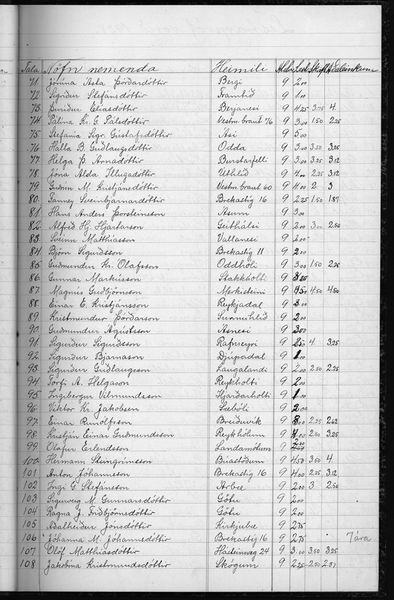 Tala Nöfn nemenda Heimili
71 Jónína Ásta Þórðardóttir Bergi 9 2.00
72 Sigríður Stefánsdóttir Framtíð 9 1.00
73 Þuríður Elíasdóttir Berjanesi 9 4.25 3.75 4
74 Pálína Kr. G. Pálsdóttir Vestm braut 76 9 3.00 1.50 2.25
75 Stefanía Sigr. Gústafsdóttir Ási 9 5.00
76 Halla B. Guðlaugsdóttir Odda 9 3.00 3.50 3.25
77 Helga Þ Árnadóttir Burstarfelli 9 3.00 3.25 3.12
78 Jóna Alda Illugadóttir Vetlhlíð 9 4.00 2.25 3.12
79 Guðrún M. Kristjánsdóttir Vestm braut 60 9 4.00 2 3
80 Fanney Sveinbjarnardóttir Brekastíg 16 9 2.25 1.50 1.87
81 Hans Anders Þorsteinsson 9 3.00
82 Alfreð Hj. Hjartarson Geithálsi 9 2.00 3.00 2.50
83 Matthíasson Vallanesi 9 2.00
84 Björn Sigurðsson Brekastíg 11 9 2.00
85 Guðmundur Kr. Ólafsson Oddhól 9 3.00 1.50 2.25
86 Gunnar Markússon 9
87 Magnús Guðjónsson 9 4.50 4.50 4.50
88 Einar E. Kristjánsson Reykjadal 9
89 Kristmundur Þórðarson Sunnuhlíð 9 2.00
90 Guðmundur Ágústsson Ásnesi 9
91 Sigurður Sigurðsson Rafnseyri 9 2.50 4 3.25
92 Sigurður Bjarnason Djúpadal 9
93 Sigurður Guðlaugsson Laugalandi 9 2.00 2.50 2.25
94 Torfi A. Helgason Reykholti 9 2.00
95 Ingibergur Vilmundsson Hjarðarholti 9 1.00
96 Viktor Kr. Jakobsen Sæbóli 9 2.00
97 Einar Runólfsson Breiðuvík 9 3.00 2.25 2.62
98 Kristján Einar Guðmundsson Reykhólum 9 4.00 2.50 3.25
99 Ólafur Erlendsson Landamótum 9
100 Hermann Steingrímsson 9 4.50 3.50 4
101 Anton Jóhannsson Brekastíg 16 9 4.00 2.25 3.12
102 Ingi G Stefánsson Árbæ 9 2.00 3 2.50
103 Sigurveig M. Gunnarsdóttir Götu 9 2.00
104 Ragna J. Friðbjörnsdóttir Götu 9 2.00
105 Aðalheiður Jónsdóttir Kirkjubæ 9 2.75
106 Jóhanna M. Jóhannsdóttir Brekastíg 16 9 2.75 Tára
107 Ólöf Matthíasdóttir Hásteinsveg 24 9 3.00 3.50 3.25
108 Jakobína Kristmundsdóttir Skógum 9 2.25 2.50 2.37